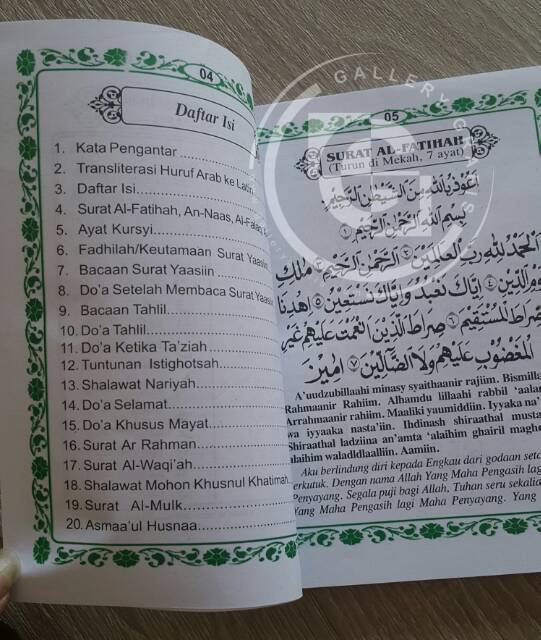 04
Daftar Isi
1. Kata Pengantar
2. Transliterasi Huruf Arab ke Latin
3. Daftar Isi
4. Surat Al-Fatihah, An-Naas, Al-Falaq,
5. Ayat Kursyi
6. Fadhilah/Keutamaan Surat Yaasiin
7. Bacaan Surat Yaasiin
8. Do'a Setelah Membaca Surat Yaasiin
9. Bacaan Tahlil
10. Do'a Tahlil
11. Do'a Ketika Ta'ziah
12. Tuntunan Istighotsah
13. Shalawat Nariyah
14. Do'a Selamat
15. Do'a Khusus Mayat
16. Surat Ar Rahman
17. Surat Al-Waqi'ah
18. Shalawat Mohon Khusnul Khatimah
19. Surat Al-Mulk
20. Asmaa'ul Husnaa
GALLERY
05
SURAT AL-FATIHAH
(Turun di Mekah, 7 ayat)
اَعُوْذُ بِاللّٰهِ مِنَ الشَّيْطٰنِ الرَّجِيْمِ
بِسْمِ اللّٰهِ الرَّحْمٰنِ الرَّحِيْمِ ١
اَلْحَمْدُ لِلّٰهِ رَبِّ الْعٰلَمِيْنَ ٢ الرَّحْمٰنِ الرَّحِيْمِ ٣ مٰلِكِ
يَوْمِ الدِّيْنِ ٤ اِيَّاكَ نَعْبُدُ وَاِيَّاكَ نَسْتَعِيْنُ ٥ اِهْدِنَا
الصِّرَاطَ الْمُسْتَقِيْمَ ٦ صِرَاطَ الَّذِيْنَ اَنْعَمْتَ عَلَيْهِمْ غَيْرِ
الْمَغْضُوْبِ عَلَيْهِمْ وَلَا الضَّالِّيْنَ ٧ اٰمِيْنَ
A'uudzubillaahi minasy syaithaanir rajiim. Bismilla
Rahmaanir Rahiim. Alhamdu lillaahi rabbil 'aalam
Arrahmaanir rahiim. Maaliki yaumiddiin. Iyyaka na'
wa iyyaaka nasta'iin. Ihdinash shiraathal musta
Shiraathal ladziina an'amta 'alaihim ghairil magh
alaihim waladldlaalliin. Aamiin.
Aku berlindung diri kepada Engkau dari godaan seta
terkutuk. Dengan nama Allah Yang Maha Pengasih lag
Penyayang. Segala puji bagi Allah, Tuhan seru sekalia
Yang Maha Pengasih lagi Maha Penyayang. Yang